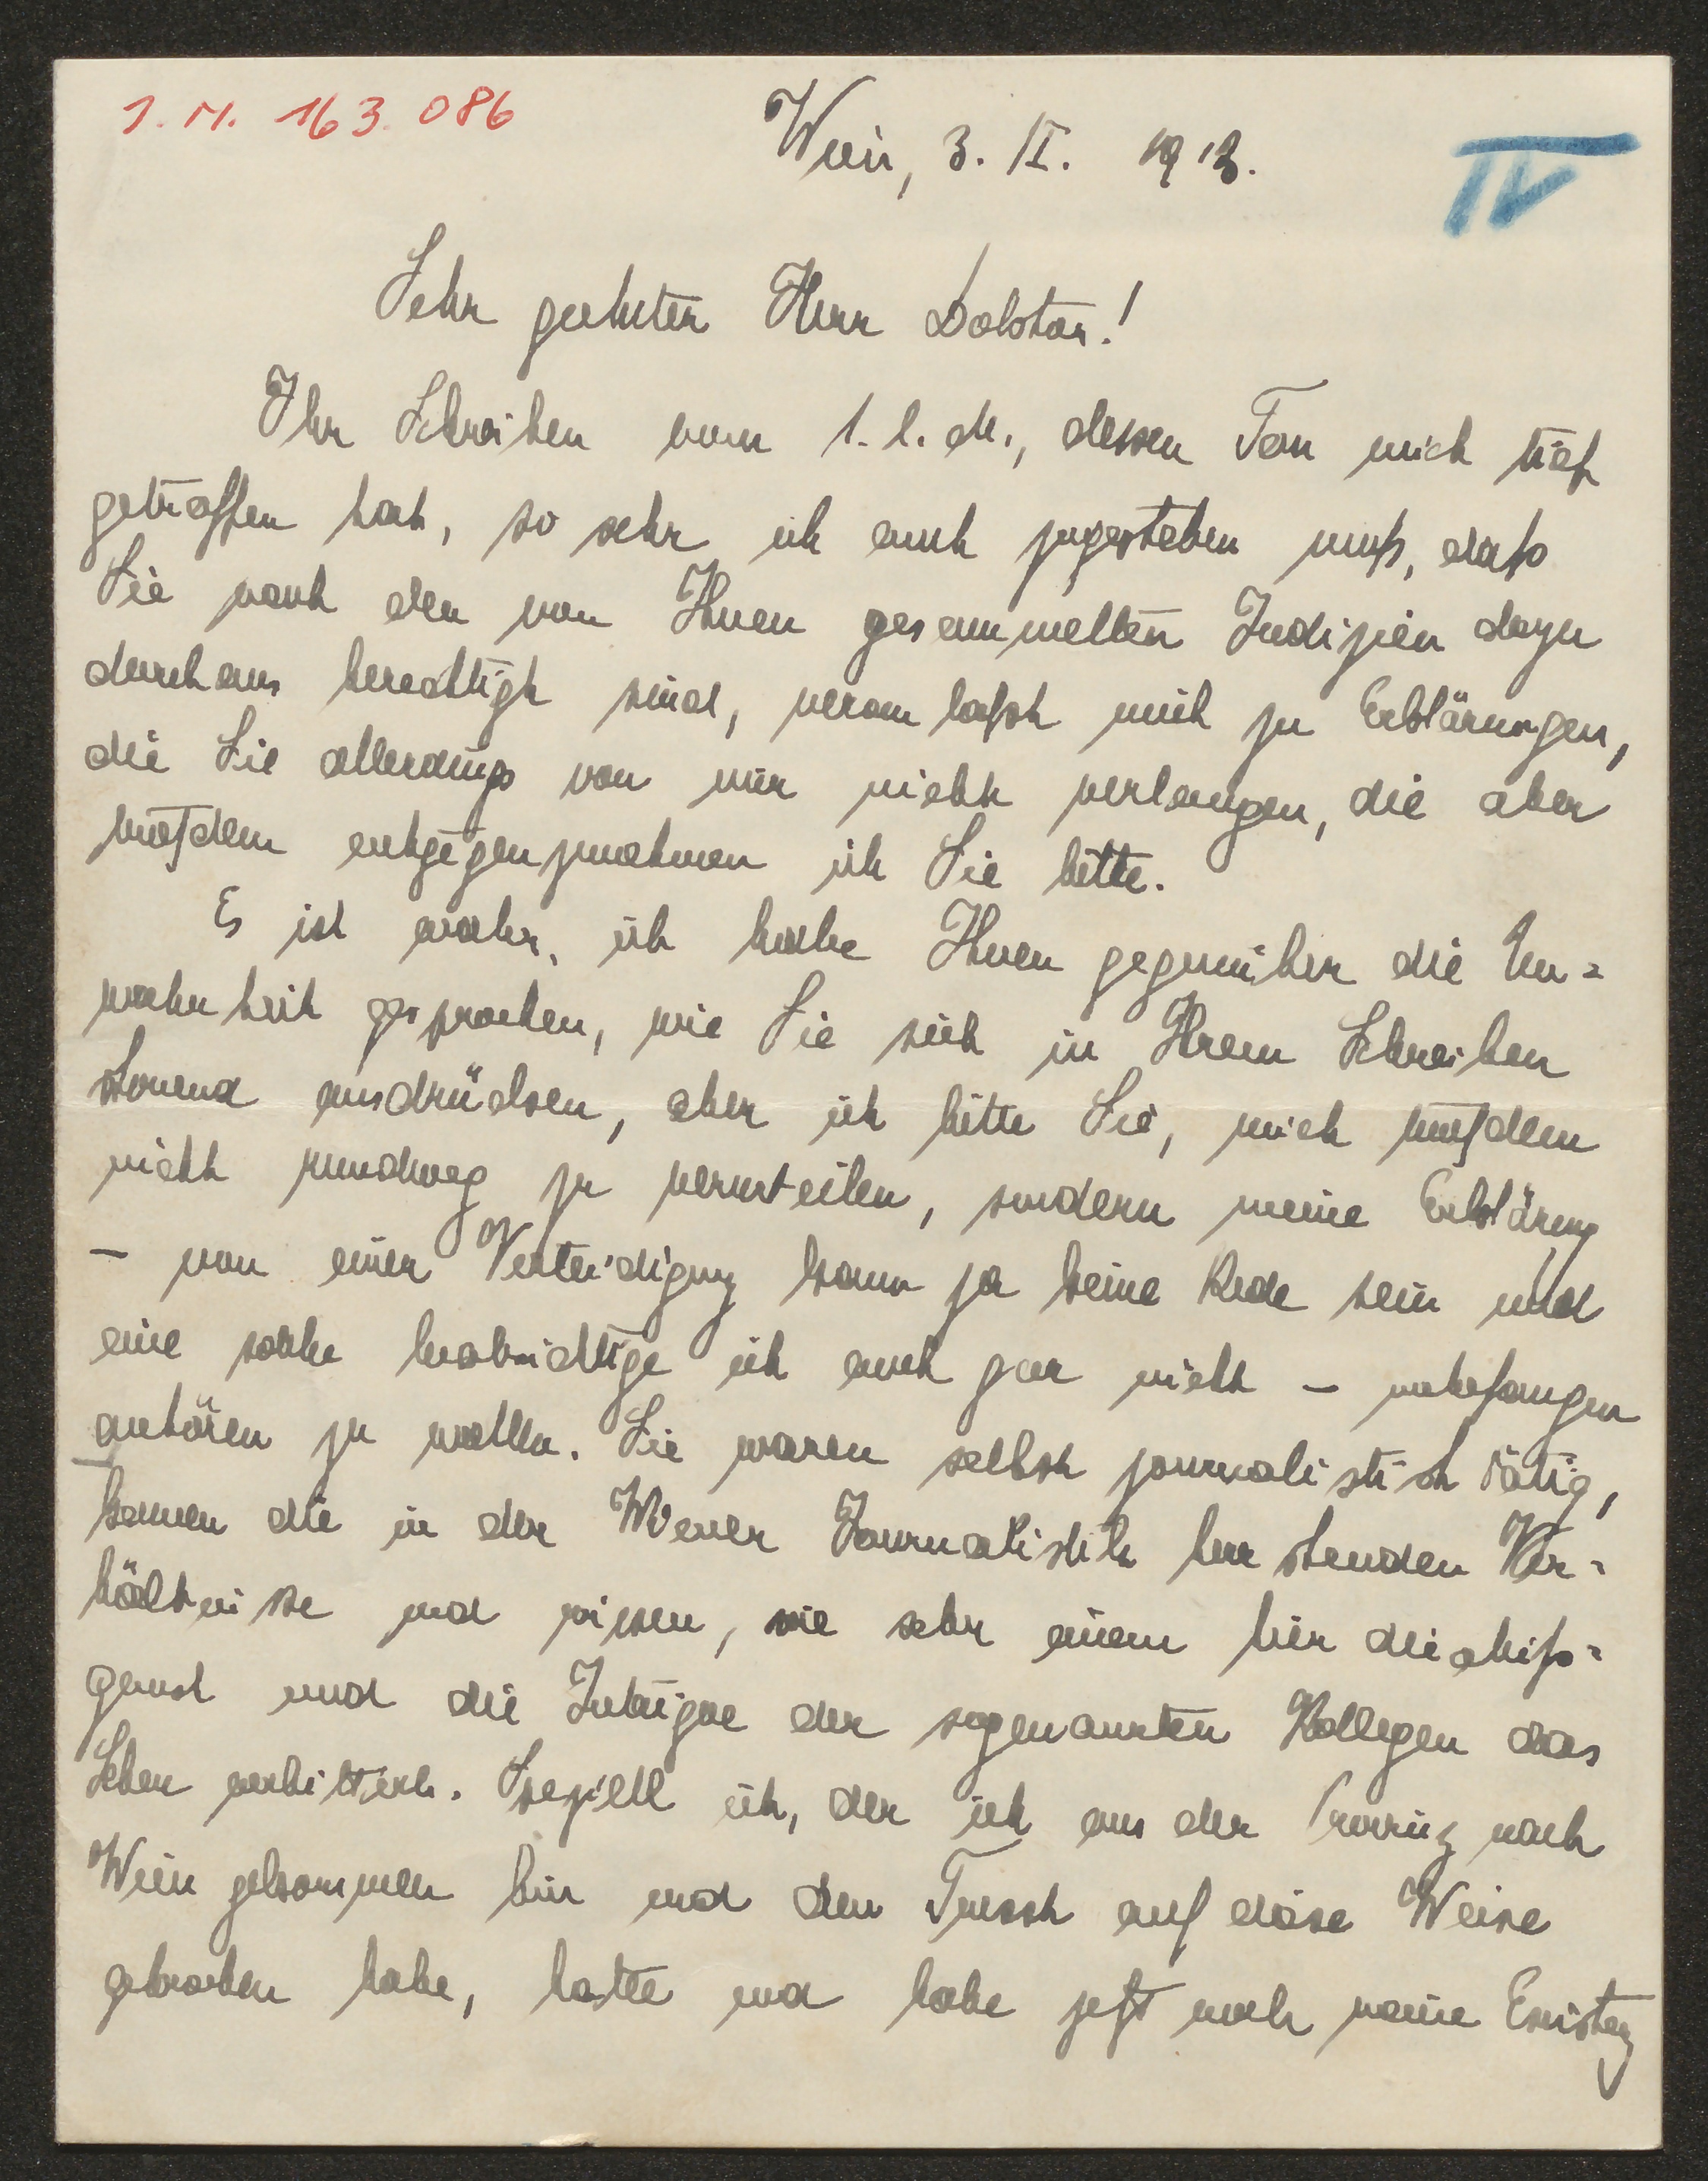 I. N. 163.086
Wien, 3. II. 1912.
IV
Sehr geehrter Herr Doktor!
Ihr Schreiben vom 1. l. M., dessen Ton mich tief
getroffen hat, so sehr ich auch zugestehen muß, daß
Sie nach den von Ihnen gesammelten Indizien dazu
durchaus berechtigt sind, veranlaßt mich zu Erklärungen,
die Sie allerdings von mir nicht verlangen, die aber
trotzdem entgegenzunehmen ich Sie bitte.
Es ist wahr, ich habe Ihnen gegenüber die Un=
wahrheit gesprochen, wie Sie sich in Ihrem Schreiben
schonend ausdrücken, aber ich bitte Sie, mich trotzdem
nicht rundweg zu verurteilen, sondern meine Erklärung
– von einer Verteidigung kann ja keine Rede sein und
eine solche beabsichtige ich auch gar nicht – unbefangen
anhören zu wollen. Sie waren selbst journalistisch tätig,
kennen die in der Wiener Journalistik herrschenden Ver=
hältnisse und wissen, wie sehr einem hier die Miß=
gunst und die Intrigue der sogenannten Kollegen das
Leben verbittert. Speziell ich, der ich aus der Provinz nach
Wien gekommen bin und den Trust auf diese Weise
gebrochen habe, hatte und habe jetzt noch meine Existenz